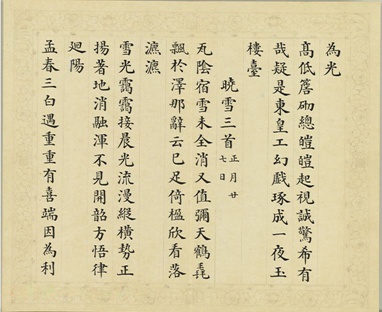 為光
高低簷砌總皚皚起視誠驚希有
哉疑是東皇工幻戲琢成一夜玉
樓臺
曉雪三首 正月廿七日
瓦陰宿雪未全消又值彌天鶴毳
飄於澤那辭云已足倚楹欣看落
瀌瀌
雪光靄靄接晨光流漫縱橫勢正
揚著地消融渾不見開韶方悟律
迴陽
孟春三白遇重重有喜端因為利